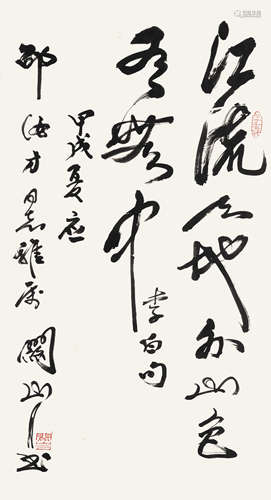 江流天地外山色
有无中
李白句
甲戌夏应
邵海才同志雅属
关山月书